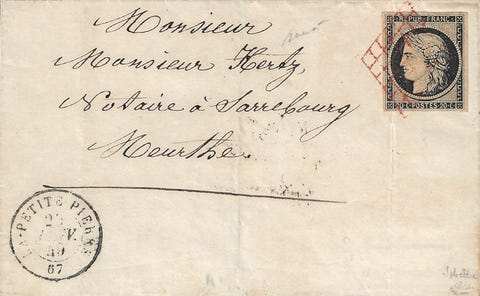 Monsieur
Monsieur Hertz
Notaire à Sarrebourg
Meurthe
REPUB. FRANC.
20 C POSTES 20 C
LA PETITE PIERRE
67